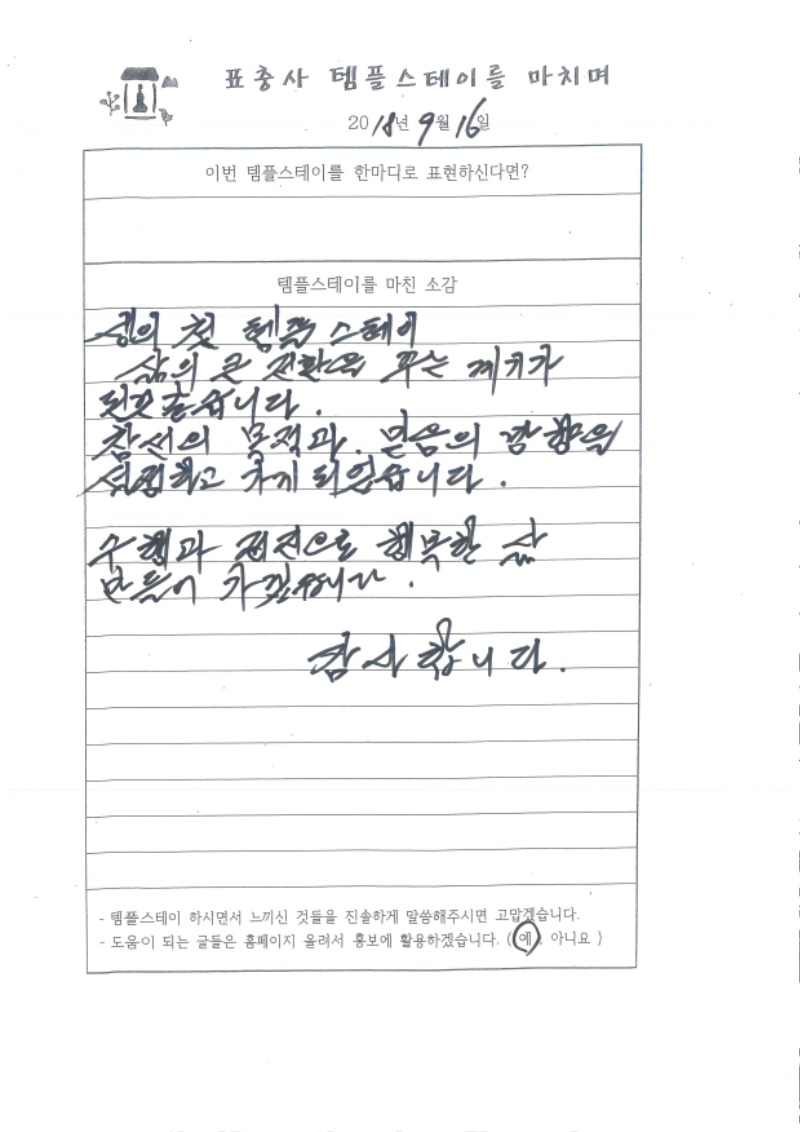 표충사 템플스테이를 마치며
2018년 9월 16일
이번 템플스테이를 한마디로 표현하신다면?
템플스테이를 마친 소감
생의 첫 템플스테이
삶의 큰 전환을 주는 계기가
된것 같습니다.
참선의 목적과, 믿음의 방향을
설정하고 가게 되었습니다.
수행과 정진으로 행복한 삶
만들어 가겠습니다.
감사합니다.
- 템플스테이 하시면서 느끼신 것들을 진솔하게 말씀해주시면 고맙겠습니다.
- 도움이 되는 글들은 홈페이지 올려서 홍보에 활용하겠습니다. ( 예 . 아니요 )